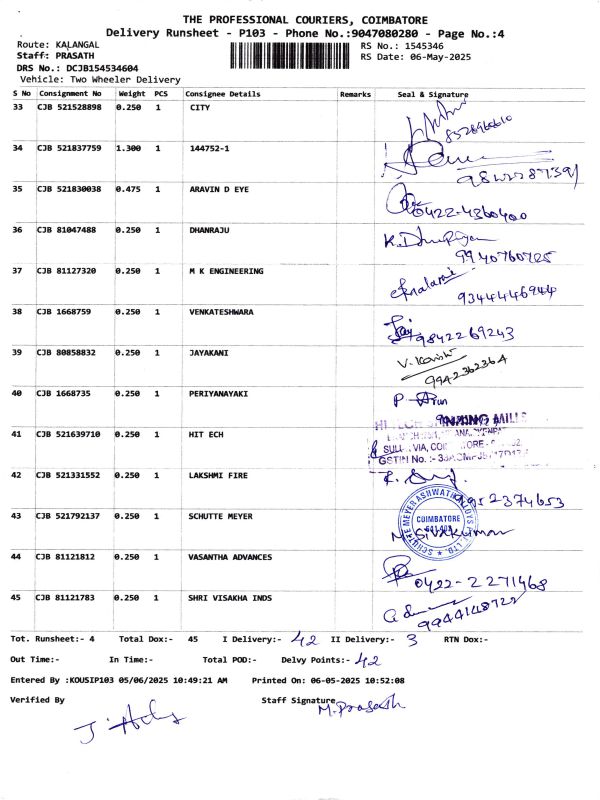 THE PROFESSIONAL COURIERS, COIMBATORE
Delivery Runsheet - P103 - Phone No.:9047080280 - Page No.:4
Route: KALANGAL RS No.: 1545346
Staff: PRASATH RS Date: 06-May-2025
DRS No.: DCJB154534604
Vehicle: Two Wheeler Delivery
S No Consignment No Weight PCS Consignee Details Remarks Seal & Signature
33 CJB 521528898 0.250 1 CITY
34 CJB 521837759 1.300 1 144752-1
35 CJB 521830038 0.475 1 ARAVIN D EYE 0422-4360400
36 CJB 81047488 0.250 1 DHANRAJU
9940760725
37 CJB 81127320 0.250 1 M K ENGINEERING
9344446944
38 CJB 1668759 0.250 1 VENKATESHWARA 9842269243
39 CJB 80858832 0.250 1 JAYAKANI
9942362364
40 CJB 1668735 0.250 1 PERIYANAYAKI P. Arun
41 CJB 521639710 0.250 1 HIT ECH MILLS
42 CJB 521331552 0.250 1 LAKSHMI FIRE
9952374653
43 CJB 521792137 0.250 1 SCHUTTE MEYER COIMBATORE
M. Sivakumar
44 CJB 81121812 0.250 1 VASANTHA ADVANCES
0422-2271468
45 CJB 81121783 0.250 1 SHRI VISAKHA INDS
9944148722
Tot. Runsheet:- 4 Total Dox:- 45 I Delivery:- 42 II Delivery:- 3 RTN Dox:-
Out Time:- In Time:- Total POD:- Delvy Points:- 42
Entered By :KOUSIP103 05/06/2025 10:49:21 AM Printed On: 06-05-2025 10:52:08
Verified By Staff Signature
M. Prasath